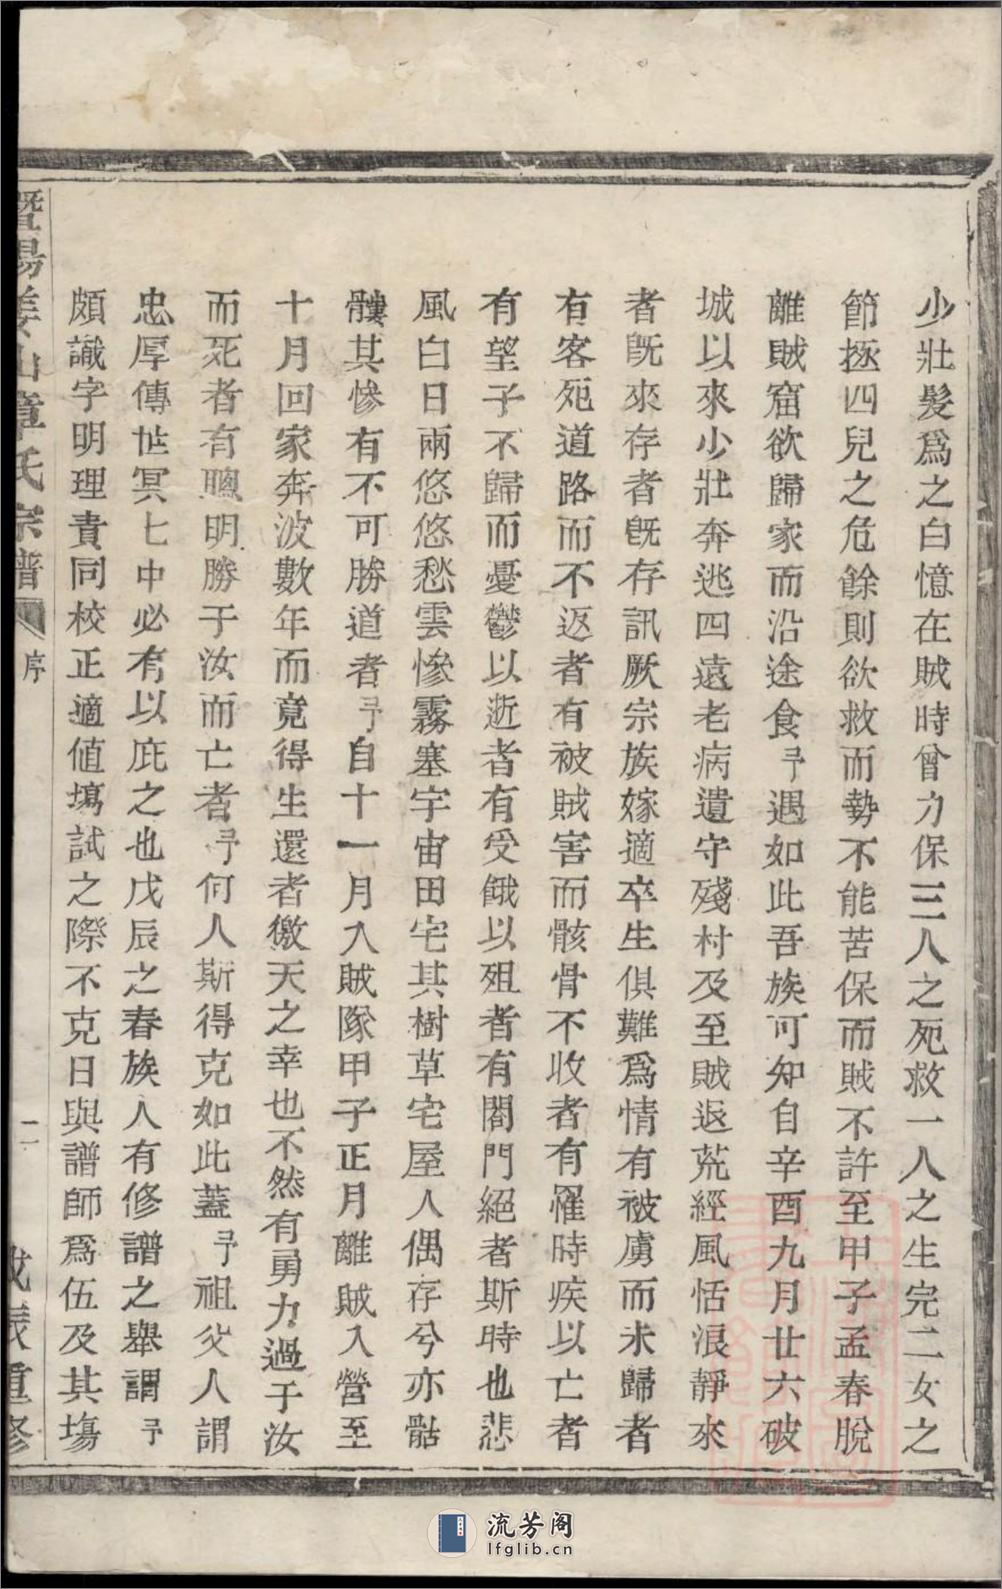 少壯髮爲之白憶在賊時曾力保三人之死救一人之生完二女之
節拯四兒之危餘則欲救而勢不能苦保而賊不許至甲子孟春脫
離賊窟欲歸家而沿途食予遇如此吾族可知自辛酉九月廿六破
城以來少壯奔逃四遠老病遺守殘村及至賊退荒經風恬浪靜來
者旣來存者旣存訊厥宗族嫁適卒生俱難爲情有被虜而未歸者
有客死道路而不返者有被賊害而骸骨不收者有罹時疾以亡者
有望子不歸而憂鬱以逝者有受餓以殂者有閤門絕者斯時也悲
風白日兩悠悠愁雲慘霧塞宇宙田宅其樹草宅屋人偶存兮亦骷
髏其慘有不可勝道者予自十一月入賊隊甲子正月離賊入營至
十月回家奔波數年而竟得生還者徼天之幸也不然有勇力過于汝
而死者有聰明勝于汝而亡者予何人斯得克如此蓋予祖父人謂
忠厚傳世冥七中必有以庇之也戊辰之春族人有修譜之舉謂予
頗識字明理責同校正適值塲試之際不克日與譜師爲伍及其塲
暨陽姜山章氏宗譜 序 二 戊辰重修
流芳阁
lfglib.cn